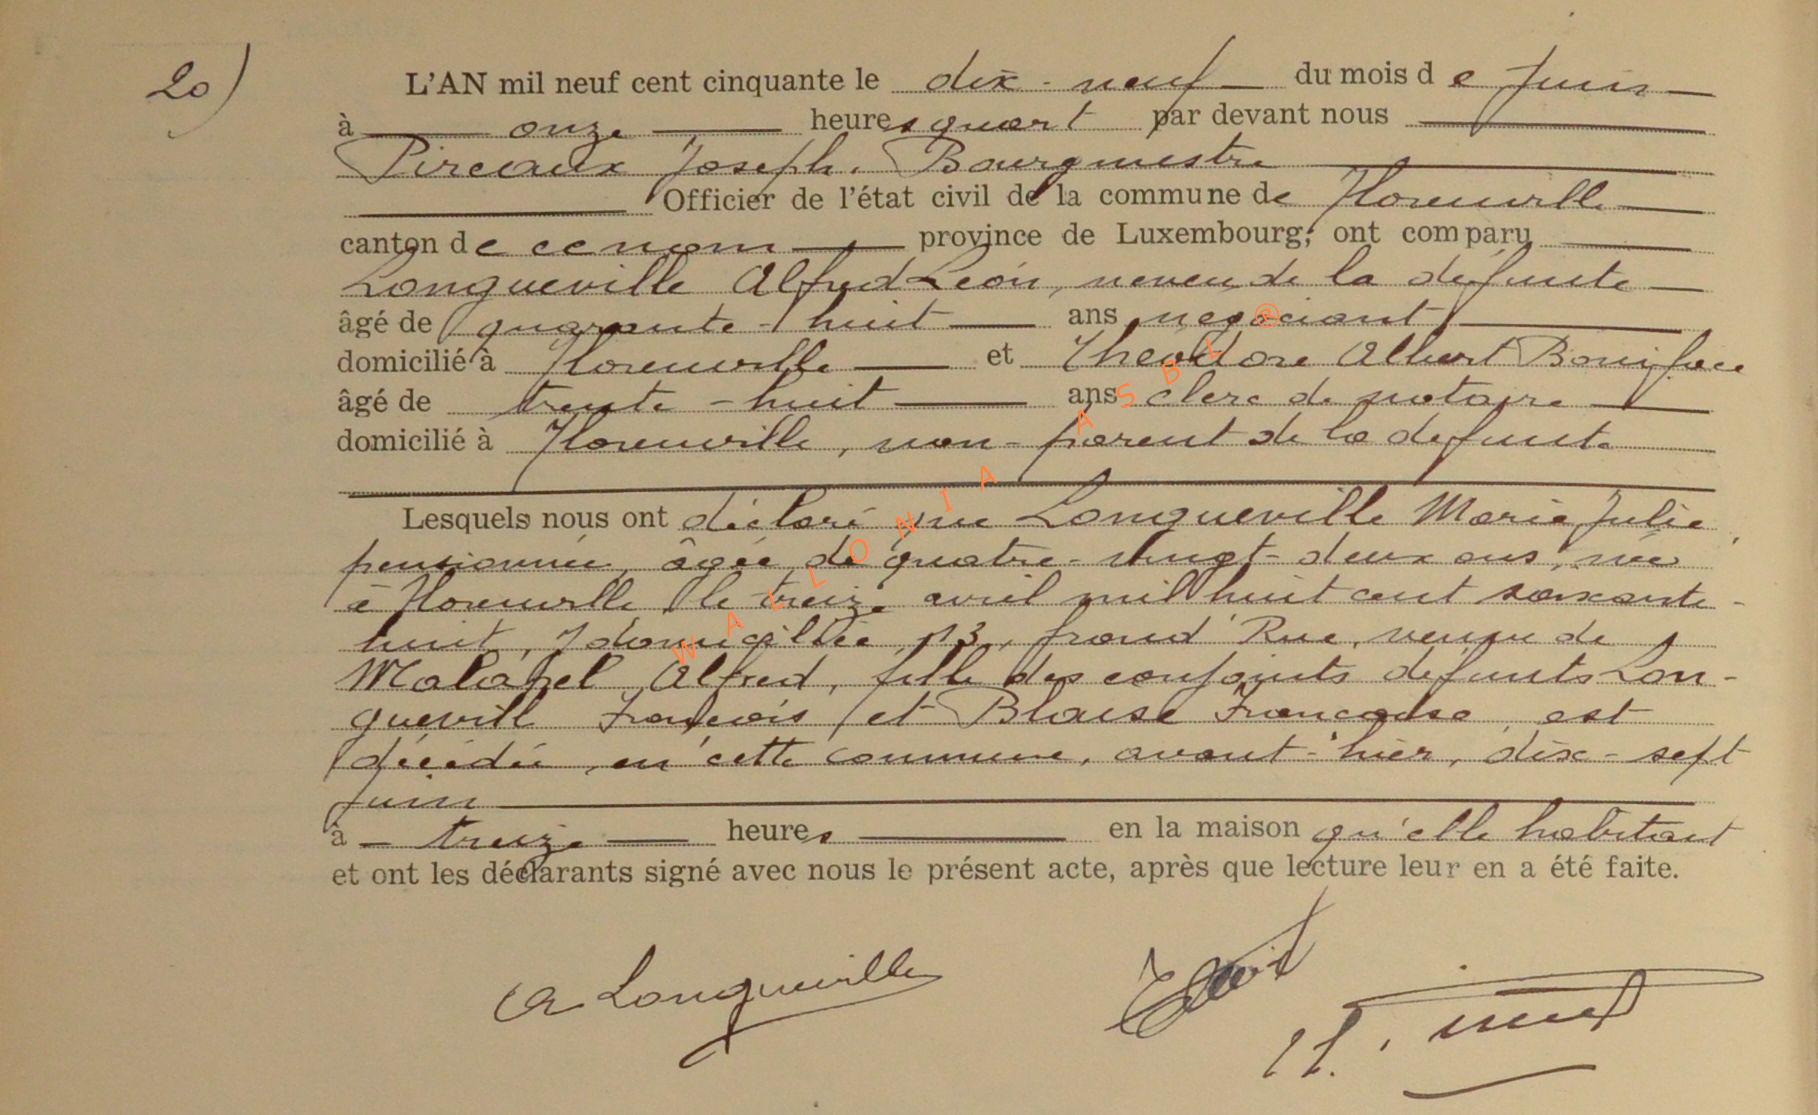 20)
L'AN mil neuf cent cinquante le dix-neuf du mois de Juin
à onze heures quart par devant nous
Pireaux Joseph, Bourgmestre
Officier de l'état civil de la commune de Florenville
canton de ce nom province de Luxembourg, ont comparu
Longueville Alfred Léon, neveu de la défunte
âgé de quarante-huit ans négociant
domicilié à Florenville et Théodore Albert Boniface
âgé de trente-huit ans clerc de notaire
domicilié à Florenville, non-parent de la défunte
Lesquels nous ont déclaré que Longueville Marie Julie
pensionnée, âgée de quatre-vingt-deux ans, née
à Florenville, le treize avril mil huit cent soixante-
huit, y domiciliée, 13, Grand'Rue, veuve de
Alfred, fille des conjoints défunts Lon-
gueville François et Blaise Françoise est
décédée en cette commune, avant-hier, dix-sept
juin
à treize heures en la maison qu'elle habitait
et ont les déclarants signé avec nous le présent acte, après que lecture leur en a été faite.
A Longueville
WALLONIA ASBL ®